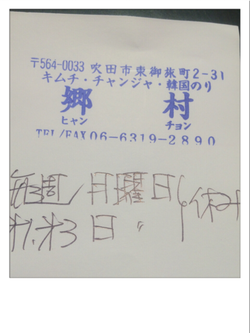 〒564-0033 吹田市東御旅町2-31
キムチ・チャンジャ・韓国のり
郷 村
ヒャン チョン
TEL/FAX 06-6319-2890
毎週/月曜日 休み
第1.第3日 〃